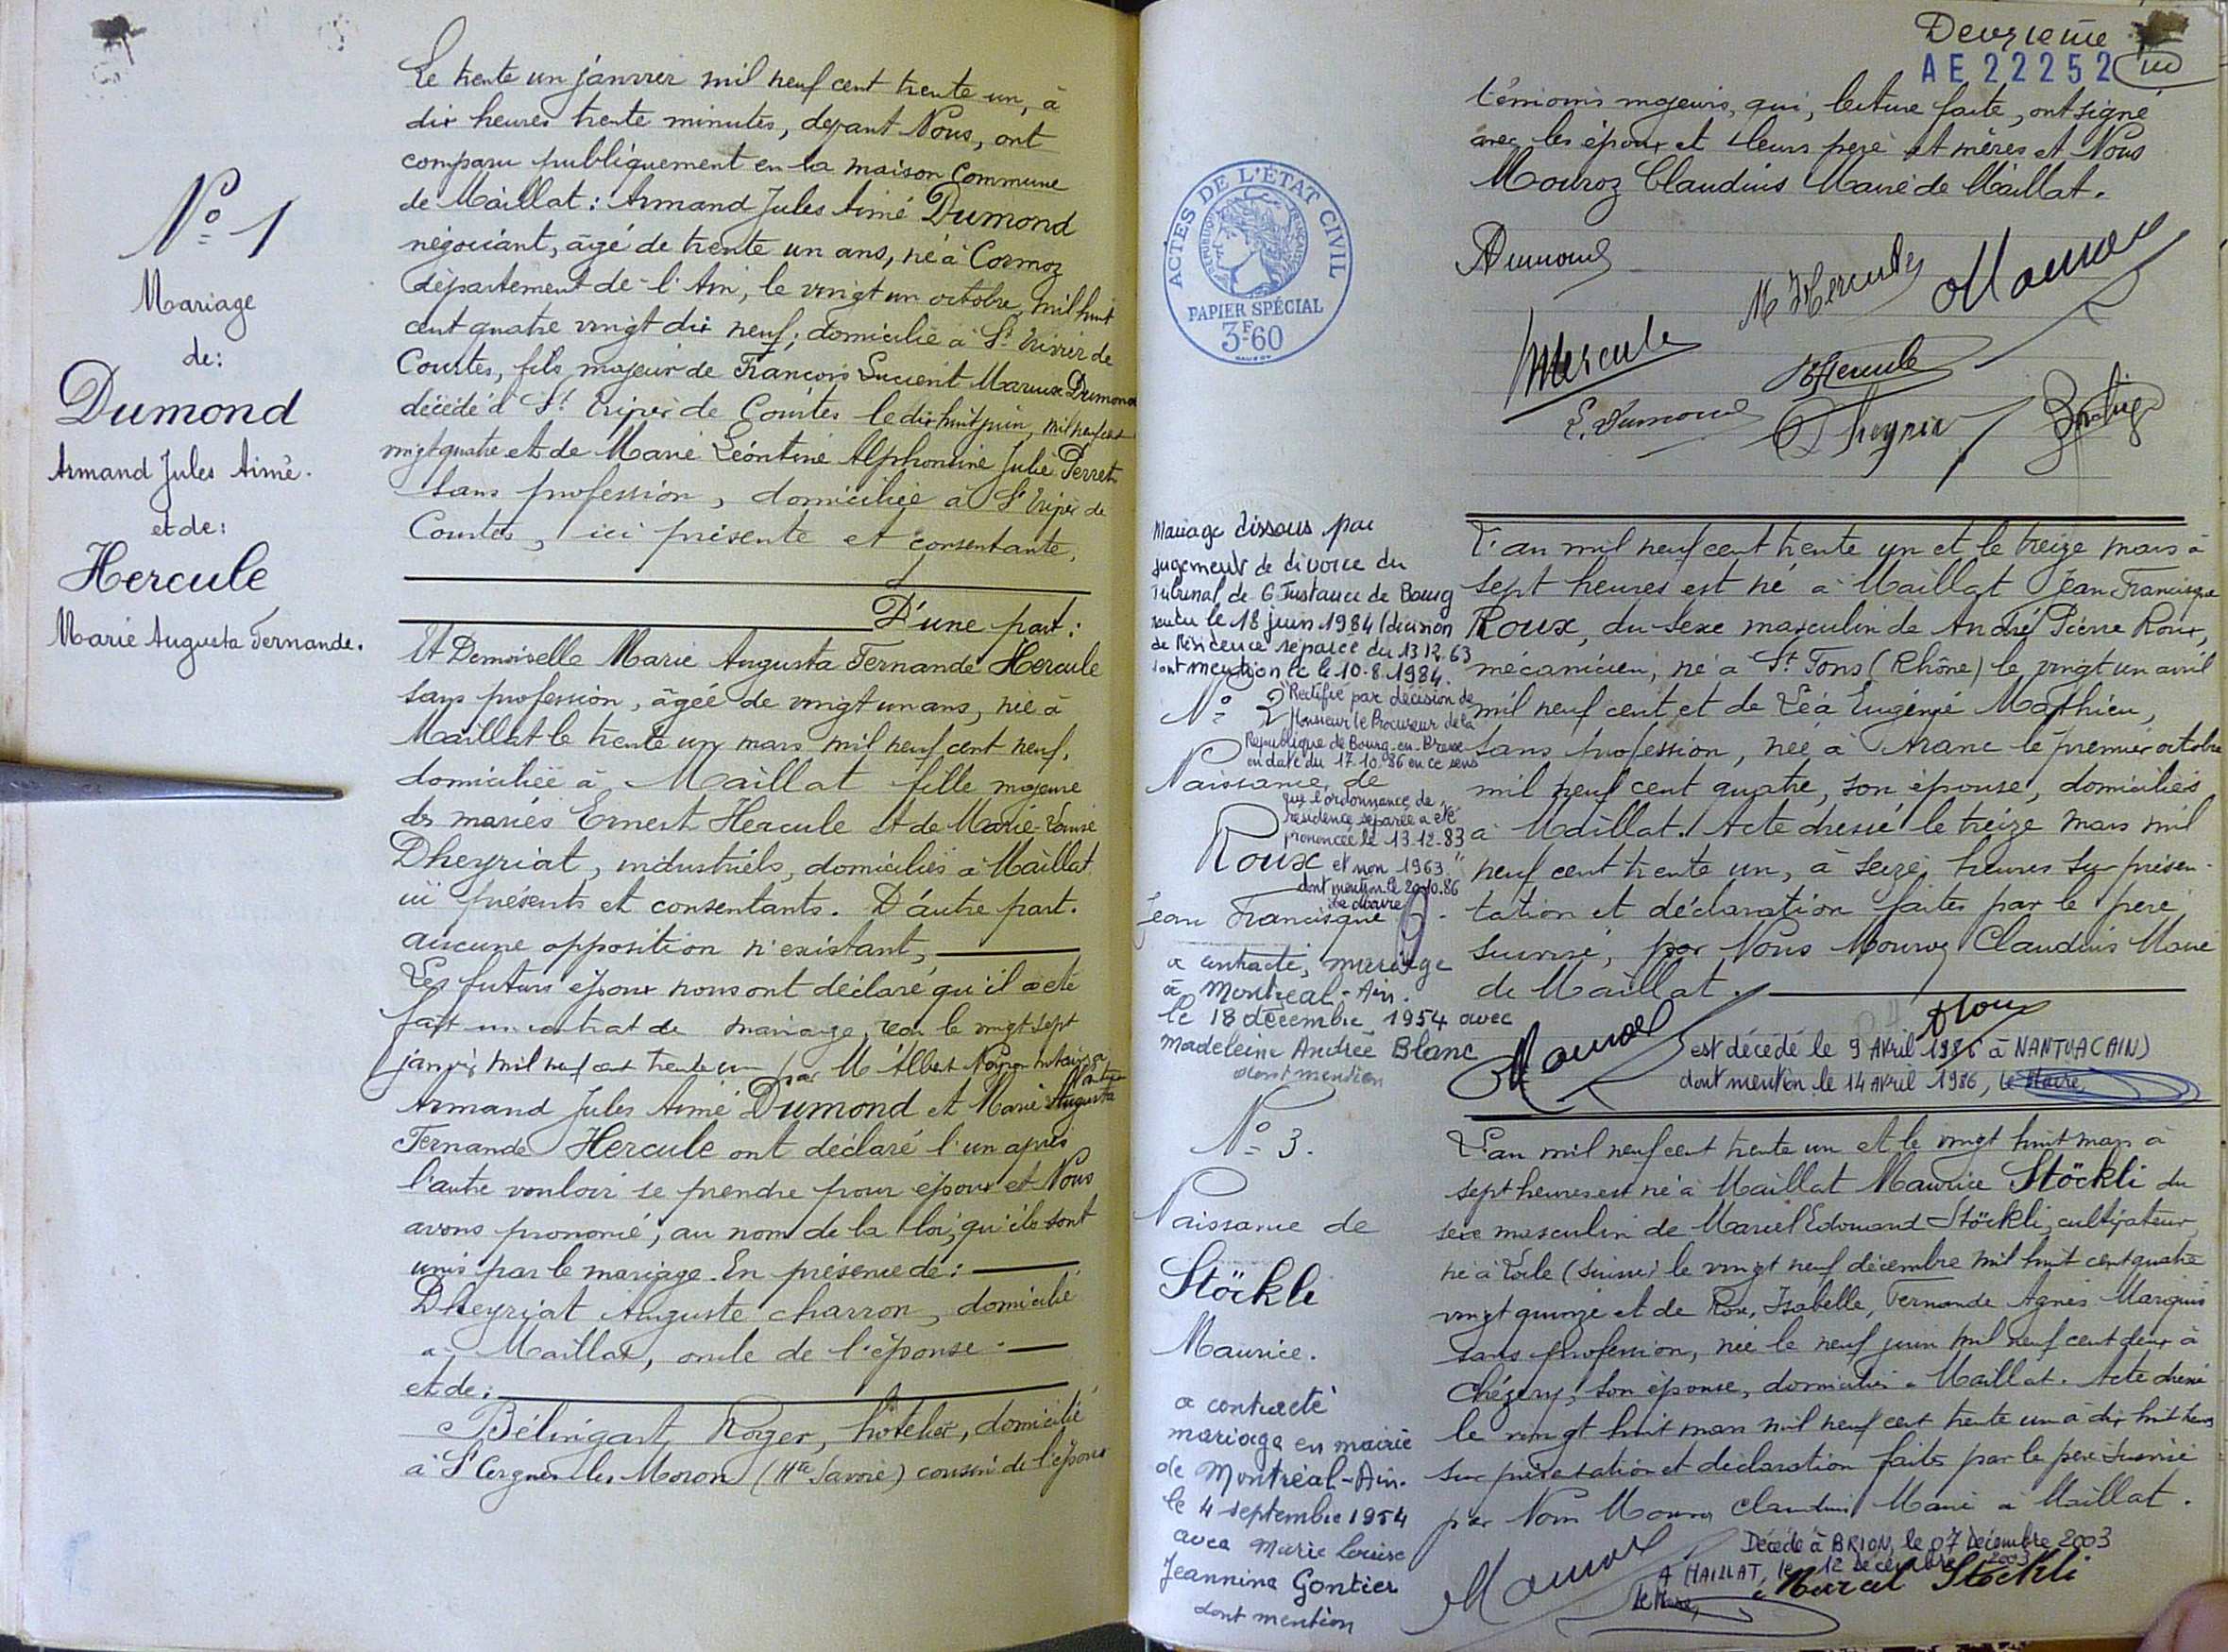 Nº 1
Mariage
de:
Dumond
Armand Jules Aimé.
et de:
Hercule
Marie Augusta Fernande.
Le trente un janvier mil neuf cent trente un, à
dix heures trente minutes, devant Nous, ont
comparu publiquement en la maison commune
de Maillat: Armand Jules Aimé Dumond
négociant, âgé de trente un ans, né à Cormoz
département de l'Ain, le vingt un octobre mil huit
cent quatre vingt dix neuf; domicilié à St Trivier de
Courtes, fils majeur de François Lucient Marius Dumond
décédé à St Trivier de Courtes le dix huit juin, mil neuf cent
vingt quatre et de Marie Léontine Alphonsine Julie Perret
sans profession, domiciliée à St Trivier de
Courtes, ici présente et consentante,
D'une part:
Et Demoiselle Marie Augusta Fernande Hercule
sans profession, âgée de vingt un ans, née à
Maillat le trente un mars mil neuf cent neuf,
domiciliée à Maillat fille majeure
des mariés Ernest Hercule et de Marie-Louise
Dheyriat, industriels, domiciliés à Maillat
ici présents et consentants. D'autre part.
aucune opposition n'existant,
Les futurs époux nous ont déclaré qu'il a été
fait un contrat de mariage, reçu le vingt sept
janvier mil neuf cent trente un par Me Albert notaire à
Nantua
Armand Jules Aimé Dumond et Marie Augusta
Fernande Hercule ont déclaré l'un après
l'autre vouloir se prendre pour époux et Nous
avons prononcé, au nom de la loi, qu'ils sont
unis par le mariage. En présence de:
Dheyriat Auguste charron, domicilié
à Maillat, oncle de l'épouse
et de:
Bélingart Roger, hôtelier, domicilié
à St Cergues les (Hte Savoie) cousin de l'époux
Deuxième
AE 22252
témoins majeurs, qui, lecture faite, ont signé
avec les époux et leurs père et mères et Nous
Mouroz Claudius Maire de Maillat.
ACTES DE L'ÉTAT CIVIL
RÉPUBLIQUE FRANÇAISE
PAPIER SPÉCIAL
3F60
Dumond
M Hercule
Mouroz
Hercule
Hercule
L. Dumond
Dheyriat
Mariage dissous par
jugement de divorce du
Tribunal de G Instance de Bourg
rendu le 18 juin 1984 (décision
de Résidence séparée du 13 12.63
dont mention le 10-8-1984.
Nº 2
"Rectifié par décision de
Monsieur le Procureur de la
République de Bourg-en-Bresse
en date du 17.10.86 en ce sens
Naissance de
que l'ordonnance de
résidence séparée a été
prononcée le 13-12-83
Roux
et non 1963"
dont mention le 20.10.86
Le Maire
Jean Francisque
a contracté, mariage
à Montréal-Ain.
le 18 décembre 1954 avec
Madeleine Andrée Blanc
dont mention
L'an mil neuf cent trente un et le treize mars à
sept heures est né à Maillat Jean Francisque
Roux, du sexe masculin de André Pierre Roux,
mécanicien, né à St Fons (Rhône) le vingt un avril
mil neuf cent et de Léa Eugénie Matthieu,
sans profession, née à Aranc le premier octobre
mil neuf cent quatre, son épouse, domiciliés
à Maillat. Acte dressé le treize mars mil
neuf cent trente un, à seize heures sur présen-
tation et déclaration faites par le père
susvisé, par Nous Mouroz Claudius Maire
de Maillat.
Mouroz
Roux
est décédé le 9 Avril 1986 à NANTUA (AIN)
dont mention le 14 Avril 1986, Le Maire
Nº 3.
Naissance de
Stöckli
Maurice.
a contracté
mariage en mairie
de Montréal-Ain.
le 4 septembre 1954
avec Marie Louise
Jeannine Gontier
dont mention
L'an mil neuf cent trente un et le vingt huit mars à
sept heures est né à Maillat Maurice Stöckli du
sexe masculin de Marcel Edouard Stöckli, cultivateur,
né à Locle (Suisse) le vingt neuf décembre mil huit cent quatre
vingt quinze et de Rose, Isabelle, Fernande Agnès Marquis
sans profession, née le neuf juin mil neuf cent deux à
Chézery, son épouse, domiciliés à Maillat. Acte dressé
le vingt huit mars mil neuf cent trente un à dix huit heures
sur présentation et déclaration faites par le père susvisé
par Nous Mouroz Claudius Maire à Maillat.
Mouroz
Décédé à BRION, le 07 Décembre 2003
A MAILLAT, le 12 Décembre 2003
Le Maire,
Marcel Stöckli